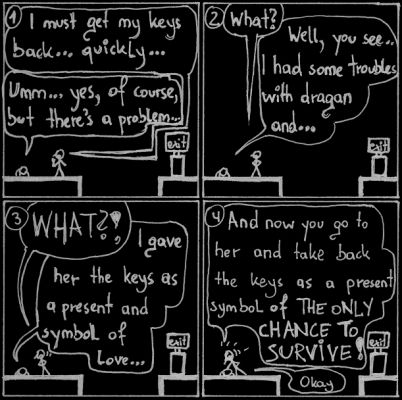 1
I must get my keys
back... quickly...
Umm... yes, of course,
but there's a problem...
exit
2
What?
Well, you see..
I had some troubles
with dragan
and...
exit
3
WHAT?!
I gave
her the keys as
a present and
symbol of
love...
exit
4
And now you go to
her and take back
the keys as a present
symbol of THE ONLY
CHANCE TO
SURVIVE!
exit
Okay